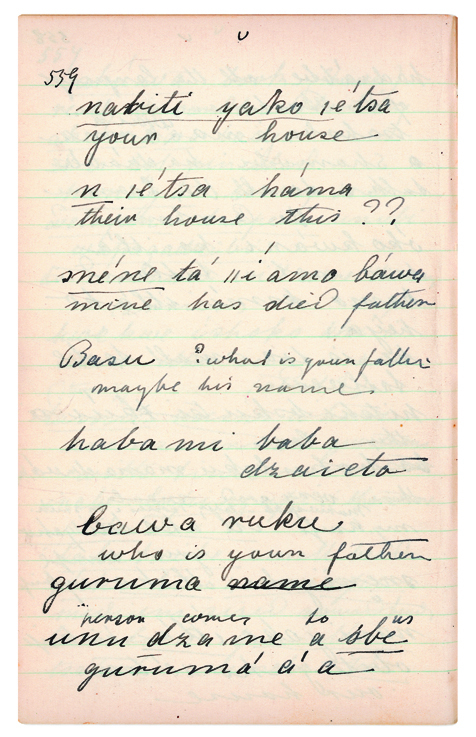 559
nabiti yako iétsa
your house
n iétsa háma
their house this ??
méné tá 11í amo báwa
mine has died father
Basu ? what is your father
maybe his name
haba mi baba
dzaieto
bawa ruku
who is your father
guruma name
person comes to us
unu dzame a obe
gurumá á a